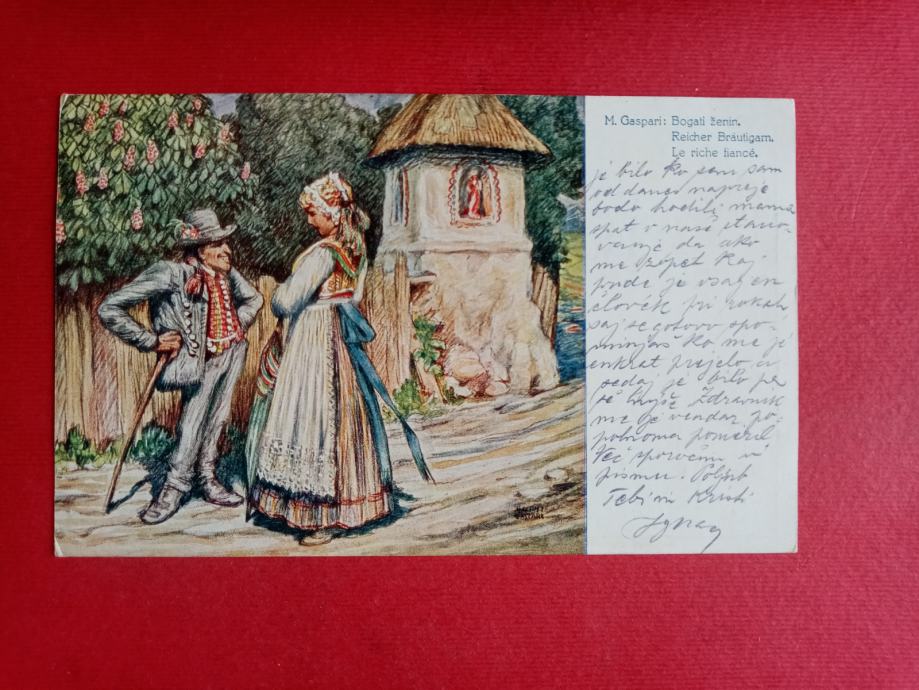 M. Gaspari: Bogati ženin.
Reicher Bräutigam.
Le riche fiancé.
je bilo ko sem sam
od danes naprej
bodo hodili mama
spat v naše stano-
vanje da ako
me zopet kaj
pride je vsaj en
človek pri rokah
saj se gotovo spo-
minjaš ko me je
enkrat prejelo,
sedaj je bilo pa
še hujše Zdravnik
me je vendar po-
polnoma pomiril
Več sporočim v
pismu. Poljub
Tebi in
Ignac